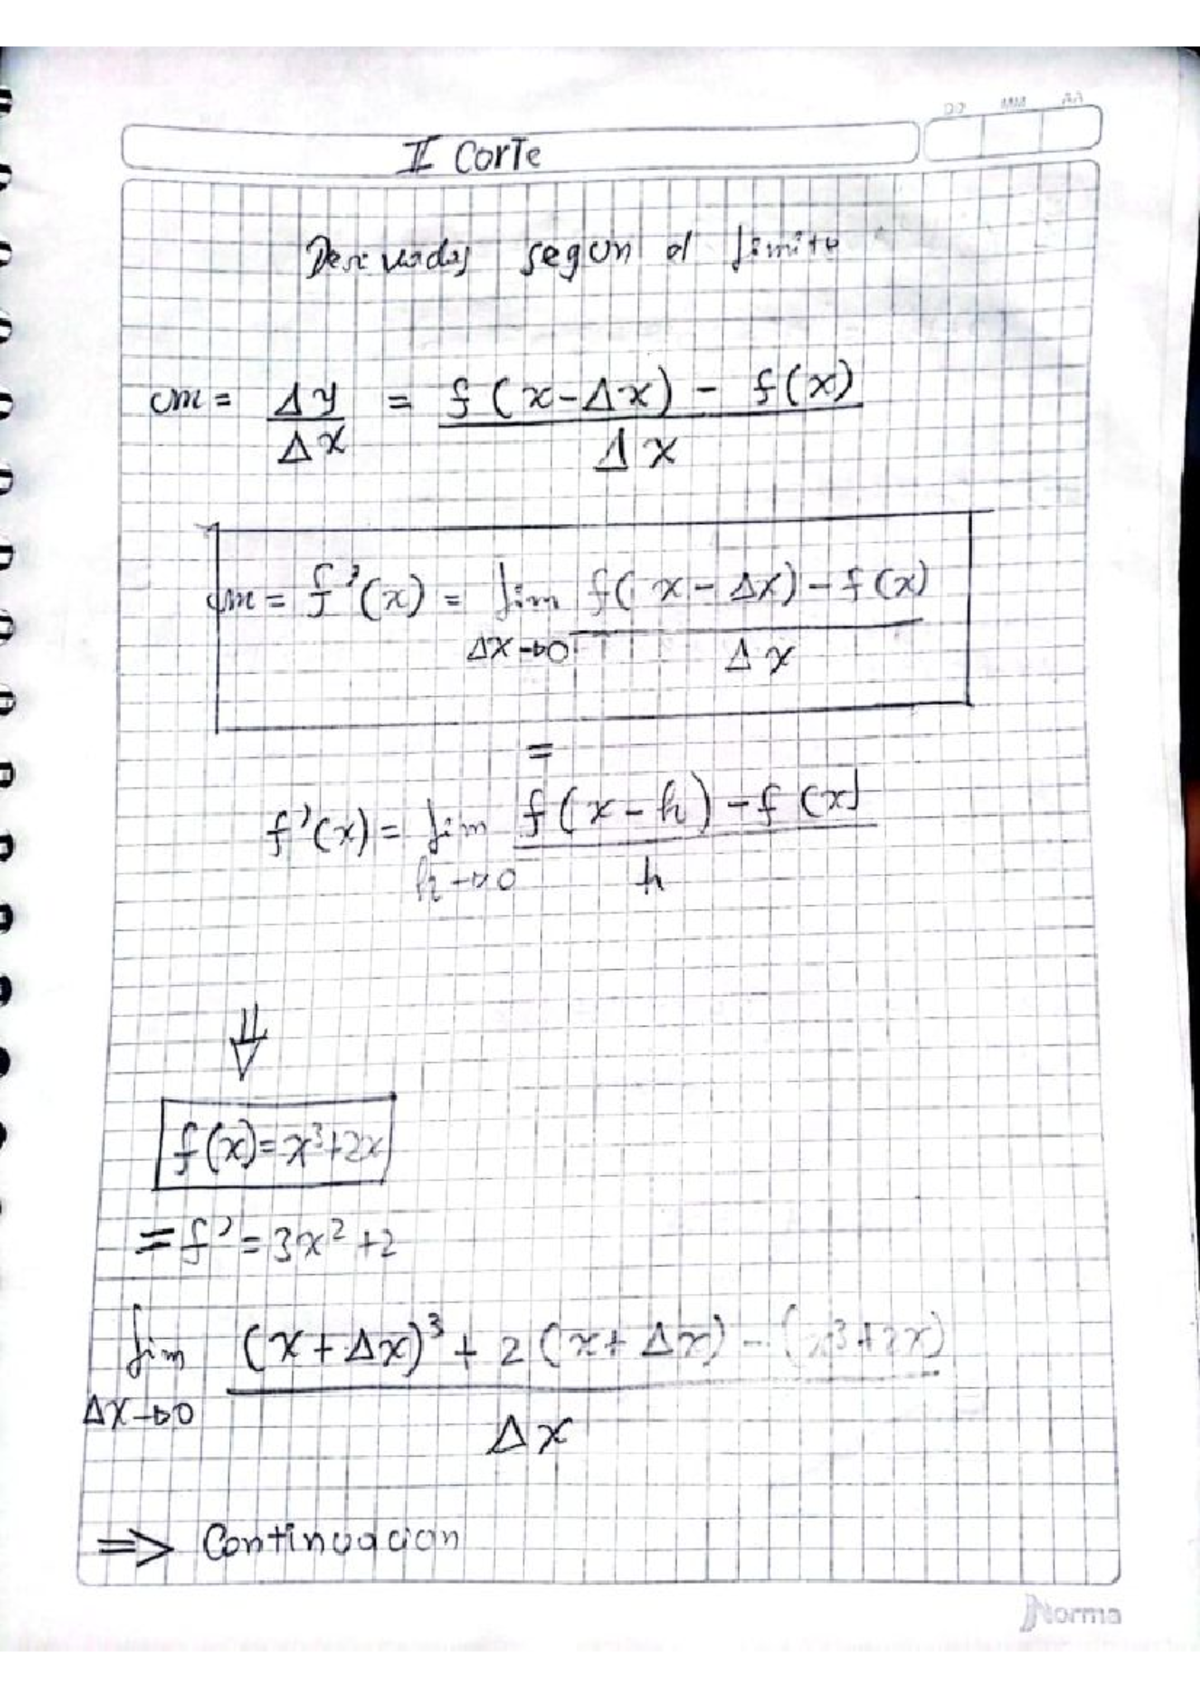 DD MM AA
II Corte
Derivadas segun el limite
m = Δy/Δx = f(x-Δx) - f(x) / Δx
m = f'(x) = lim Δx→0 f(x-Δx) - f(x) / Δx
=
f'(x) = lim h→0 f(x-h) - f(x) / h
⇓
f(x)=x³+2x
= f' = 3x² +2
lim Δx→0 (x+Δx)³ + 2(x+Δx) - (x³+2x) / Δx
⇒ Continuacion
Norma